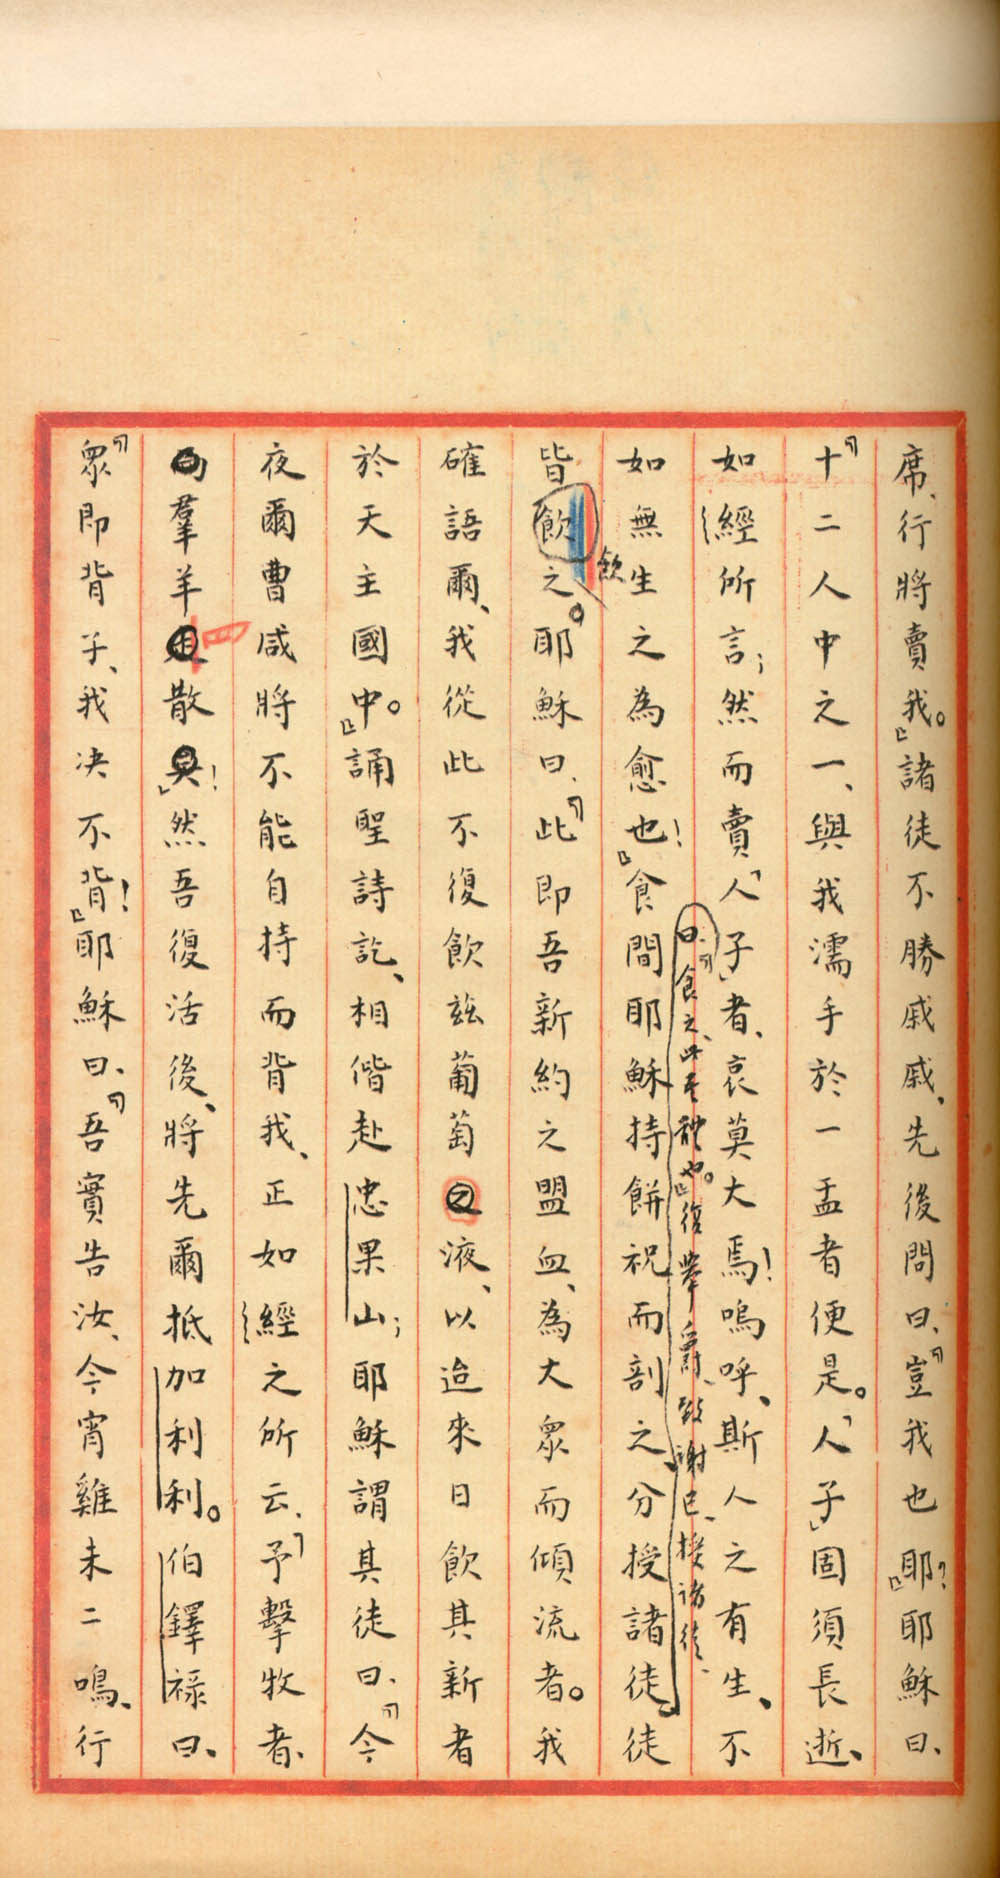 席、行將賣我。』諸徒不勝戚戚、先後問曰、『豈我也耶？』耶穌曰、
『十二人中之一、與我濡手於一盂者便是。「人子」固須長逝、
如經所言；然而賣「人子」者、哀莫大焉！嗚呼、斯人之有生、不
如無生之為愈也！』食間耶穌持餅祝而剖之、分授諸徒、徒
曰、『食之、此吾體也。』復舉爵、致謝已、授諸徒、
皆飲之。耶穌曰、『此即吾新約之盟血、為大眾而傾流者。我
飲
確語爾、我從此不復飲茲葡萄之液、以迨來日飲其新者
於天主國中。』誦聖詩訖、相偕赴忠果山；耶穌謂其徒曰、『今
夜爾曹咸將不能自持而背我、正如經之所云、「予擊牧者、
羣羊四散！」然吾復活後、將先爾抵加利利。伯鐸祿曰、
『眾即背子、我決不背！』耶穌曰、『吾實告汝、今宵雞未二鳴、行